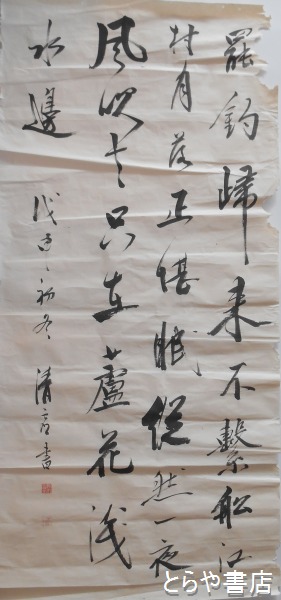 罷釣歸来不繋船江
村月落正堪眠縦然一夜
風吹去只在蘆花浅
水邊
戊申初冬 清書
とらや書店